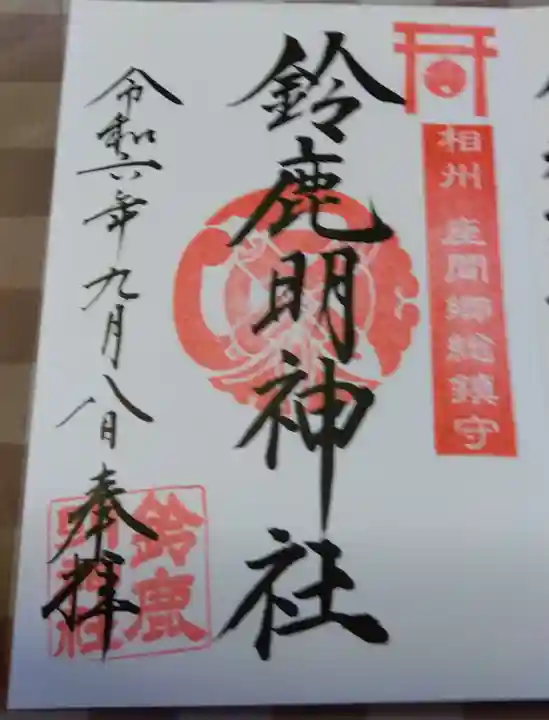 相州 座間郷総鎮守
鈴鹿明神社
令和六年九月八日 奉拝
鈴鹿
明神社